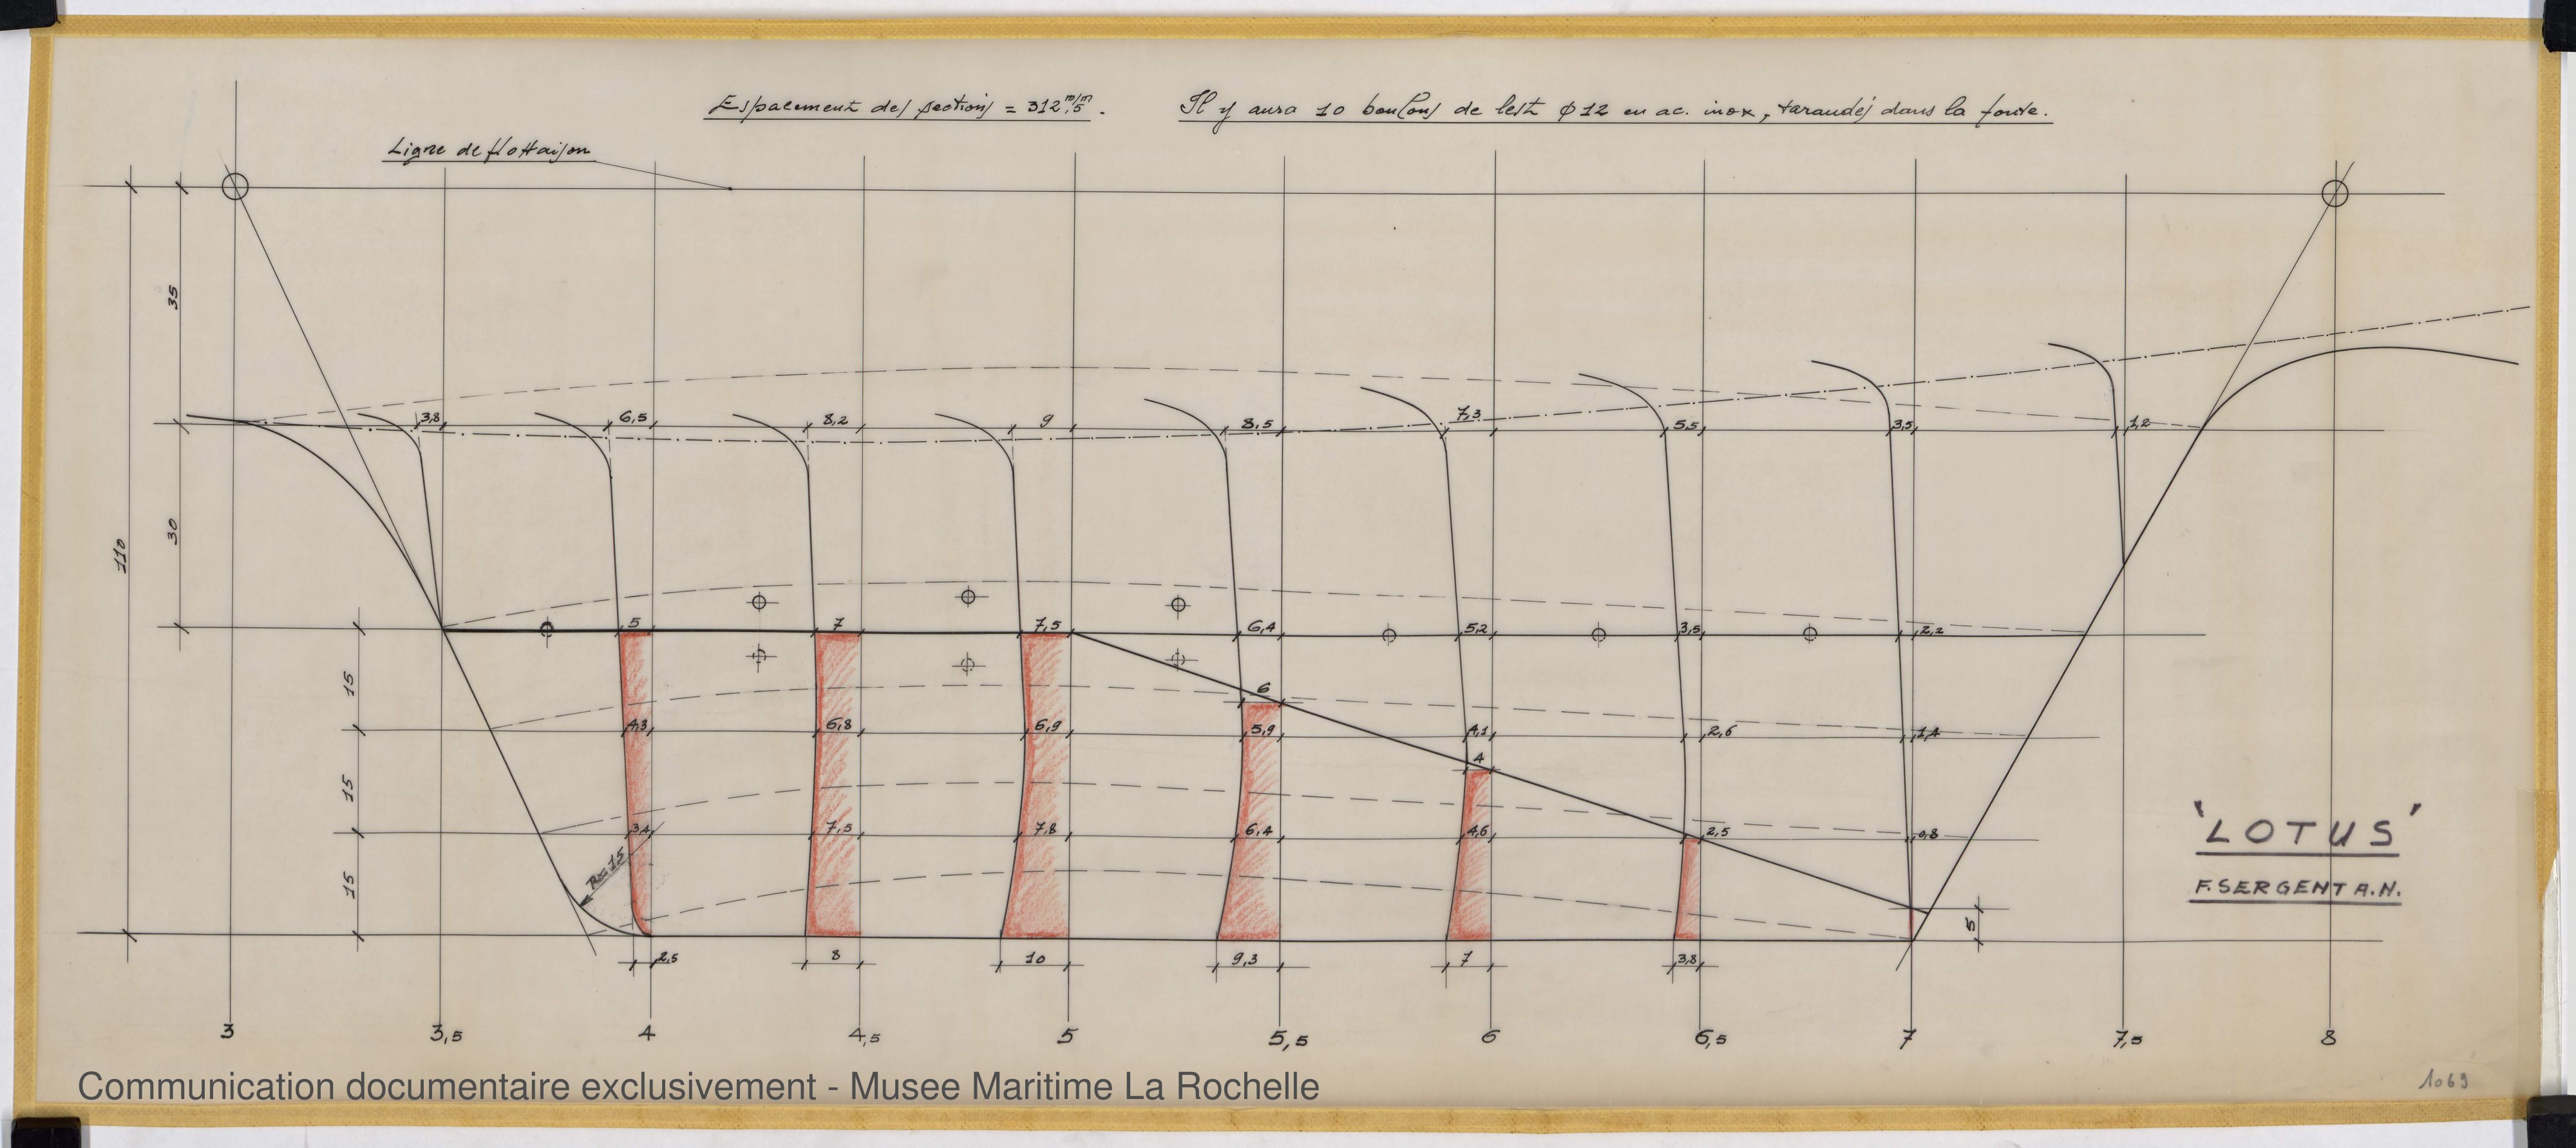 Espacement des sections = 312 m/m 5.
Il y aura 10 boulons de lest ϕ 12 en ac. inox, taraudés dans la fonte.
Ligne de flottaison
35
30
110
15
15
15
3,8
6,5
8,2
9
8,5
7,3
5,5
3,5
1,2
5
7
7,5
6,4
5,2
3,5
2,2
6
4,3
6,8
6,9
5,9
4,1
2,6
1,4
4
3,4
7,5
7,8
6,4
4,6
2,5
0,8
R = 15
5
2,5
8
10
9,3
7
3,8
'LOTUS'
F. SERGENT A.N.
3
3,5
4
4,5
5
5,5
6
6,5
7
7,5
8
1069
Communication documentaire exclusivement - Musee Maritime La Rochelle